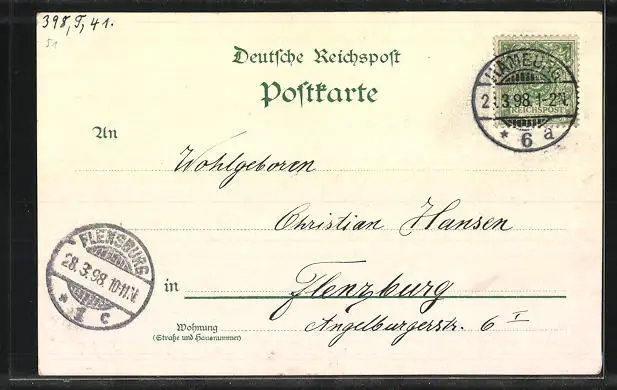 398,5,41.
51
Deutsche Reichspost
Postkarte
HAMBURG
3.98.1-2N.
* 6 a
REICHSPOST
An
Wohlgeboren
Christian Hansen
FLENSBURG
28.3.98.10-11.V.
* 1 c
in Flensburg
Wohnung Angelburgerstr. 6 I
(Straße und Hausnummer)